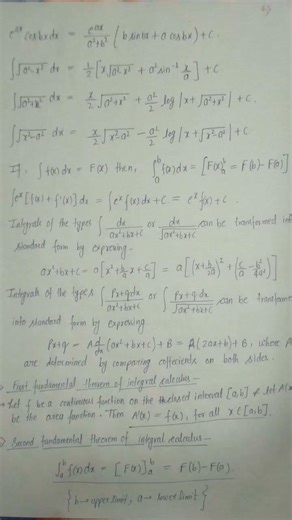 e^ax cosbx dx = e^ax/(a²+b²) (b sinbx + a cosbx) + c.
∫√(a²-x²) dx = 1/2 [x√(a²-x²) + a² sin⁻¹ x/a] + c
∫√(a²+x²) dx = x/2 √(a²+x²) + a²/2 log|x+√(a²+x²)| + c.
∫√(x²-a²) dx = x/2 √(x²-a²) - a²/2 log|x+√(x²-a²)| + c
If ∫f(x)dx = F(x) then, ∫_a^b f(x)dx = [F(x)]_a^b = F(b)-F(a)
∫e^x [f(x) + f'(x)] dx = ∫e^x f(x)dx + C = e^x f(x) + c.
Integrals of the types ∫dx/(ax²+bx+c) or ∫dx/√(ax²+bx+c) can be transformed into
standard form by expressing.
ax²+bx+c = a[x²+b/a x+c/a] = a[(x+b/2a)² + (c/a - b²/4a²)]
Integrals of the types ∫(px+q dx)/(ax²+bx+c) or ∫(px+q dx)/√(ax²+bx+c) can be transforme
into standard form by expressing
px+q = A d/dx (ax²+bx+c) + B = A(2ax+b) + B, where A
are determined by comparing cofficients on both sides.
First fundamental theorem of integral calculus -
→ Let f be a continuous function on the closed interval [a,b] & let A(x
be the area function. Then A'(x) = f(x), for all x ∈ [a,b].
Second fundamental theorem of integral calculus -
∫_a^b f(x)dx = [F(x)]_a^b = F(b)-F(a)
{b → upper limit, a → lower limit}